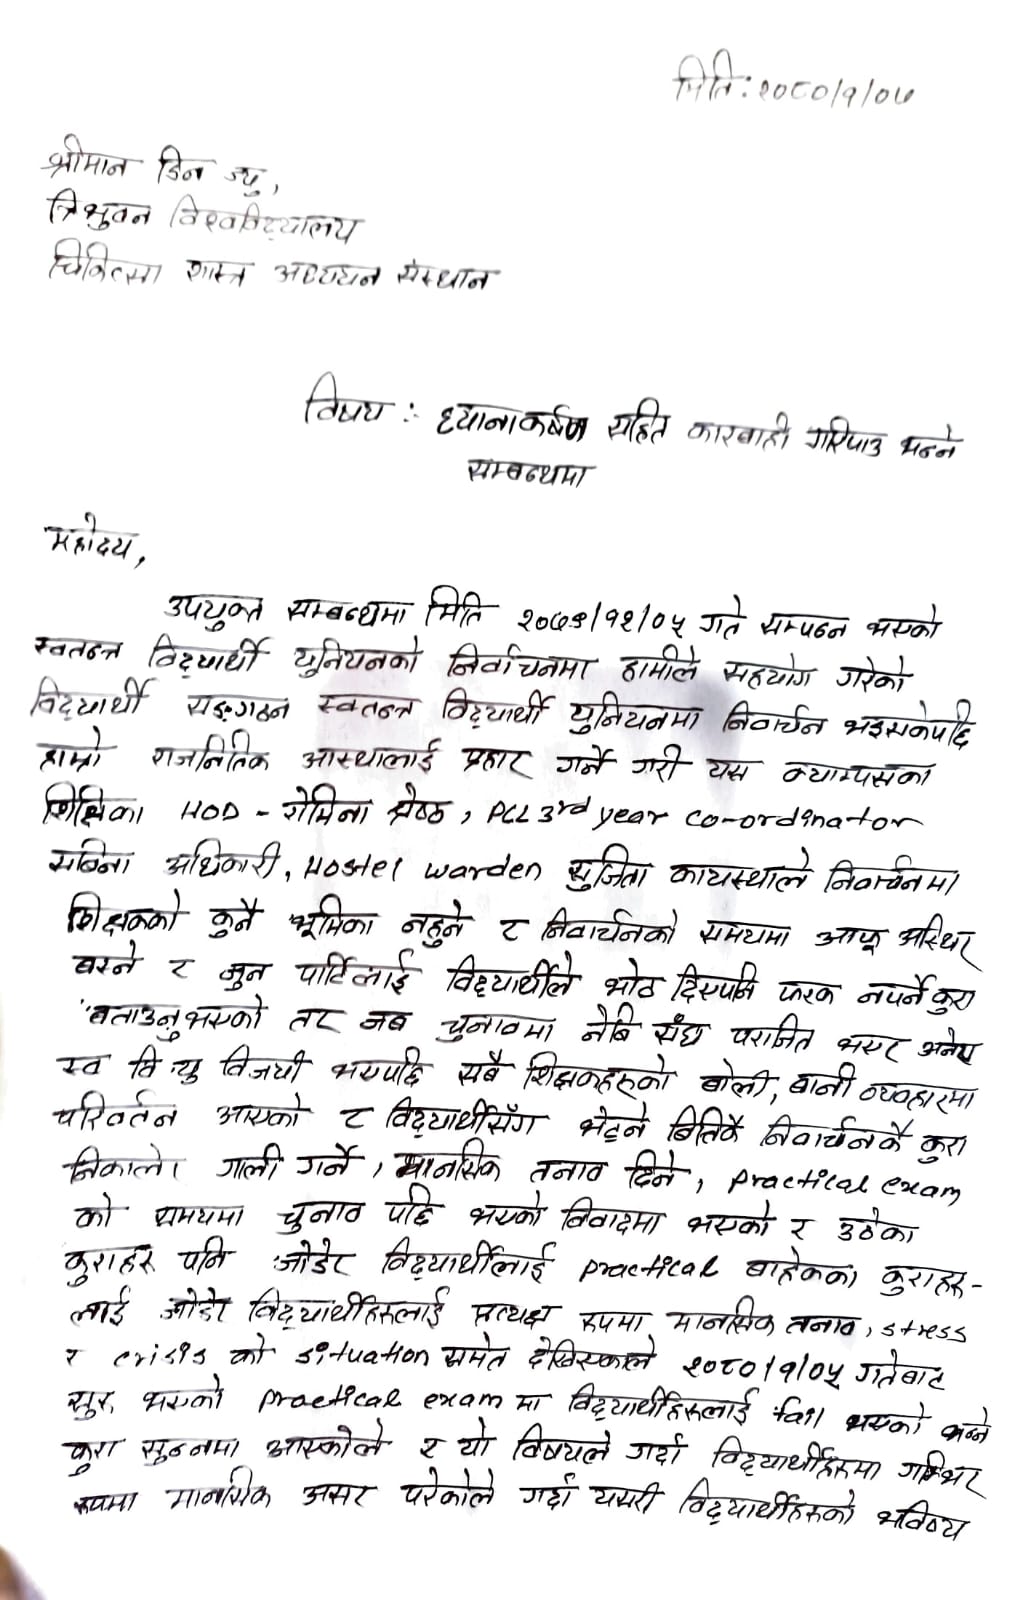 मिति: २०८०/१/०७
श्रीमान डिन ज्यु,
त्रिभुवन विश्वविद्यालय
चिकित्सा शास्त्र अध्ययन संस्थान
विषय : ध्यानाकर्षण सहित कारवाही गरिपाउ भन्ने
सम्बन्धमा
महोदय,
उपयुक्त सम्बन्धमा मिति २०७९/१२/०५ गते सम्पन्न भएको
स्वतन्त्र विद्यार्थी युनियनको निर्वाचनमा हामीले सहयोग गरेको
विद्यार्थी सङ्गठन स्वतन्त्र विद्यार्थी युनियनमा निवार्चन भइसकेपछि
हाम्रो राजनितिक आस्थालाई प्रहार गर्ने गरी यस क्याम्पसका
शिक्षिका HOD - रोमिना श्रेष्ठ, PCL 3rd year co-ordinator
सबिना अधिकारी, Hostel warden सुजिता कायस्थाले निवार्चनमा
शिक्षकको कुनै भूमिका नहुने र निवार्चनको समयमा आफू अस्थिर
बस्ने र जुन पार्टिलाई विद्यार्थीले भोट दिएपनि फरक नपर्ने कुरा
बताउनुभएको तर जब चुनावमा नेबि संघ पराजित भएर अनेरा
स्व वि यु विजयी भएपछि सबै शिक्षकहरुको बोली, बानी व्यवहारमा
परिवर्तन आएको र विद्यार्थीसँग भेट्ने बितिकै निवार्चनकै कुरा
निकाले। गाली गर्ने, मानसिक तनाव दिने, practical exam
को समयमा चुनाव पछि भएको विवादमा भएको र उठेका
कुराहरु पनि जोडेर विद्यार्थीलाई practical बाहेकका कुराहरु-
लाई जोडेर विद्यार्थीहरुलाई प्रत्यक्ष रुपमा मानसिक तनाव, stress
र crisis को situation समेत देखिएकाले २०८०/१/०५ गतेबाट
सुरु भएको practical exam मा विद्यार्थीहरुलाई fail भएको भन्ने
कुरा सुन्नमा आएकोले र यो विषयले गर्दा विद्यार्थीहरुमा गम्भिर
रुपमा मानसिक असर परेकोले गर्दा यसरी विद्यार्थीहरुको भविष्य